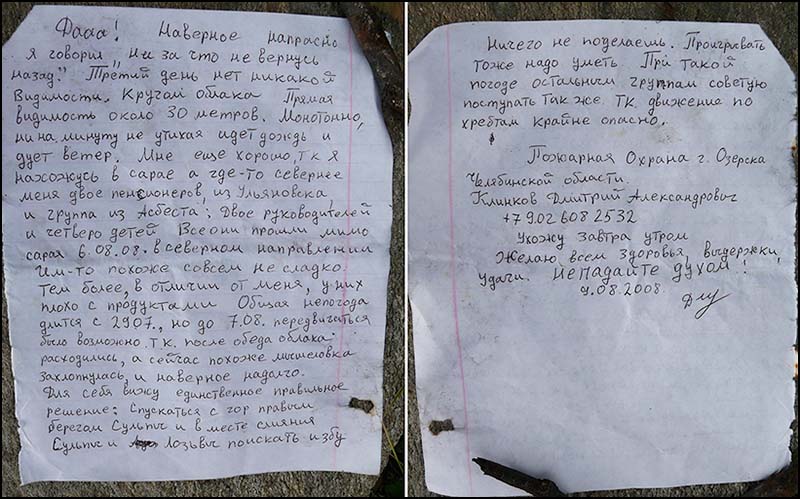 Дааа! Наверное напрасно
я говорил „Ни за что не вернусь
назад." Третий день нет никакой
видимости. Кругом облака Прямая
видимость около 30 метров. Монотонно,
ни на минуту не утихая идет дождь и
дует ветер. Мне еще хорошо, т к я
нахожусь в сарае а где-то севернее
меня двое пенсионеров, из Ульяновска,
и группа из Асбеста: Двое руководителей
и четверо детей Все они прошли мимо
сарая 6.08.08. в северном направлении
Им-то похоже совсем не сладко
Тем более, в отличии от меня, у них
плохо с продуктами Общая непогода
длится с 2907., но до 7.08. передвигаться
было возможно т.к. после обеда облака
расходились, а сейчас похоже мышеловка
захлопнулась, и наверное надолго.
Для себя вижу единственное правильное
решение: Спускаться с гор правым
берегом Сульпы и в месте слияния
Сульпы и Лозьвы поискать избу
Ничего не поделаешь. Проигрывать
тоже надо уметь. При такой
погоде остальным группам советую
поступать так же. Т.К. движение по
хребтам крайне опасно.
Пожарная Охрана г. Озерска
Челябинской области.
Клинков Дмитрий Александрович
+7902 608 2532
Ухожу завтра утром
Желаю всем здоровья, выдержки,
удачи. НЕ ПАДАЙТЕ ДУХОМ!
9.08.2008.